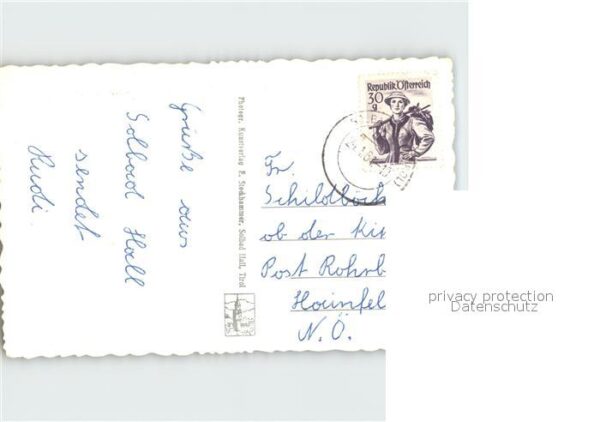 Grüße aus
Solbad Hall
sendet
Rudi.
Photogr. Kunstverlag R. Stockhammer, Solbad Hall, Tirol
Republik Österreich
30
g
Fr.
Schildboch
ob der Kir
Post Rohrb
Hainfel
N.Ö.
privacy protection
Datenschutz